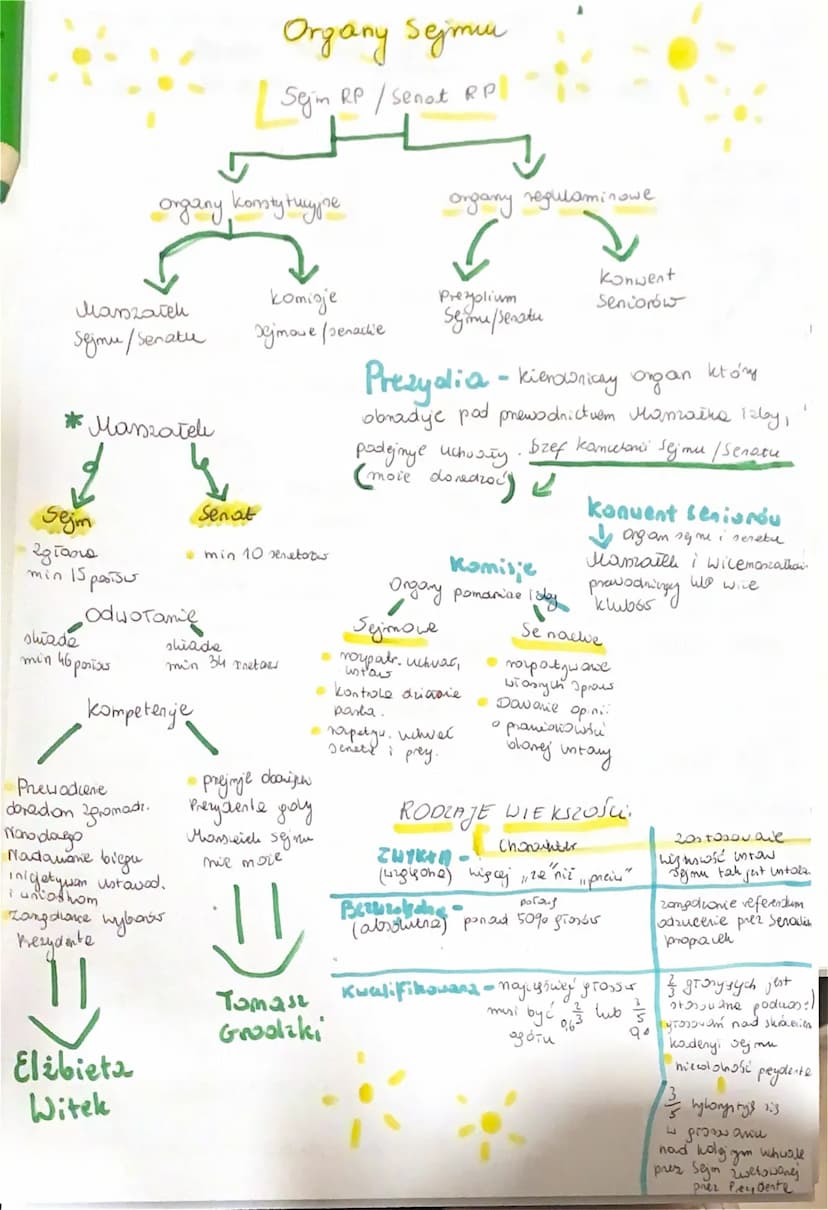 Organy Sejmu
Sejm RP / Senat RP
organy konstytucyjne
organy regulaminowe
Marszałek
Sejmu/Senatu
Komisje
sejmowe/senackie
Prezydium
Sejmu/Senatu
Konwent
Seniorów
Prezydia - kierowniczy organ który
obraduje pod przewodnictwem Marszałka izby,
podejmuje uchwały. Szef kancelarii Sejmu/Senatu
(może doradzać)
* Marszałek
Sejm
Senat
zgłasza
min 15 posłów
min 10 senatorów
Odwołanie
składa
min 46 posłów
składa
min 34
Kompetencje
Przewodzenie
obradom Zgromadz.
Narodowego
Nadawanie biegu
inicjatywom ustawod.
i wnioskom
Zarządzanie wyborów
Prezydenta
przejmuje obowiązki
Prezydenta gdy
Marszałek Sejmu
nie może
Elżbieta
Witek
Tomasz
Grodzki
Konwent Seniorów
organ sejmu i senatu
Marszałek i wicemarszałkowie
przewodniczący
klubów
Komisje
Organy pomocnicze izby
Sejmowe
rozpatr. uchwał,
ustaw
kontrola działanie
senatu i prez.
Senackie
rozpatrywanie
własnych spraw
Dawanie opinii
o prawidłowości
danej ustawy
RODZAJE WIEKSZOŚCI.
Charakter
zastosowanie
ZWYKŁA -
(względna) więcej „za" niż „przeciw"
większość ustaw
Sejmu tak jest ustala.
Bezwzględna -
(absolutna) ponad 50% głosów
zarządzanie referendum
odrzucenie przez Senat
poprawek
Kwalifikowana - najczęściej głosów
musi być 2/3 lub 3/5
0,6
ogółu
2/3 głosujących jest
stosowane podczas
głosowań nad skróceniem
kadencji sejmu
niezdolność prezydenta
3/5 wykorzystuje się
w głosowaniu
nad kolejnym uchwale
przez Sejm zwetowanej
przez Prezydenta